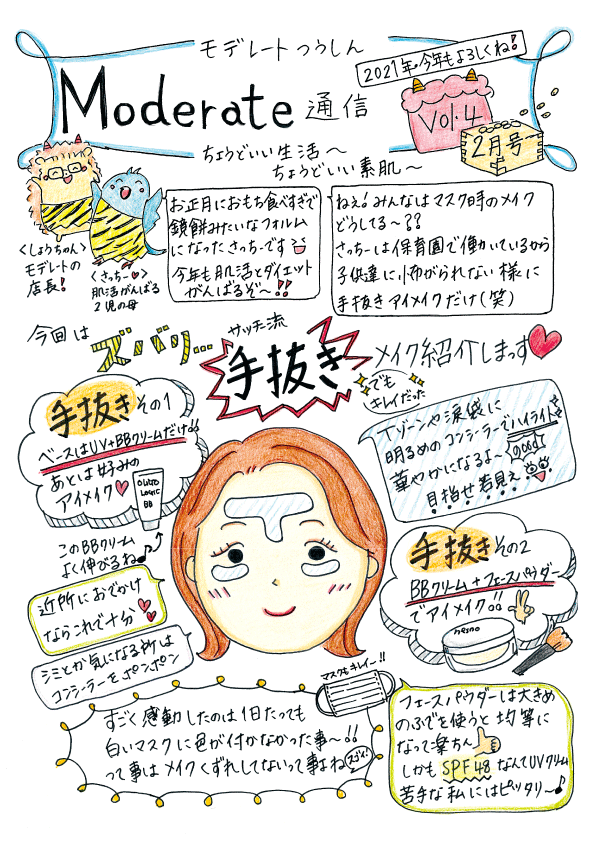 モデレートつうしん
2021年今年もよろしくね!
Moderate 通信
Vol.4
2月号
ちょうどいい生活〜
ちょうどいい素肌〜
<しょうちゃん>
モデレートの
店長!
<さっちー♥>
肌活がんばる
2児の母
お正月におもち食べすぎで
鏡餅みたいなフォルム
になったさっちーです
今年も肌活とダイエット
がんばるぞ〜!!
ねぇ!みんなはマスク時のメイク
どうしてる〜??
さっちーは保育園で働いているから
子供達に怖がられない様に
手抜きアイメイクだけ(笑)
今回は
ズバリ…
サッチ流
手抜き
メイク紹介しまっす♥
でも
キレイだった
手抜きその1
ベースはUV+BBクリームだけ!!
あとは好みの
アイメイク♥
BB
このBBクリーム
よく伸びるね♪
近所におでかけ
ならこれで十分
シミとか気になる所は
コンシーラーをポンポン
Tゾーンや涙袋に
明るめのコンシーラーでハイライト
華やかになるよ〜
目指せ若見え
手抜きその2
BBクリーム+フェースパウダー
でアイメイク!!
マスクもキレイ〜!!
すごく感動したのは1日たっても
白いマスクに色が付かなかった事〜!!
って事はメイクくずれしてないって事よね
スゴイ!
フェースパウダーは大きめ
のふでを使うと均等に
なって楽ちん
しかもSPF48なんてUVクリーム
苦手な私にはピッタリ〜♪